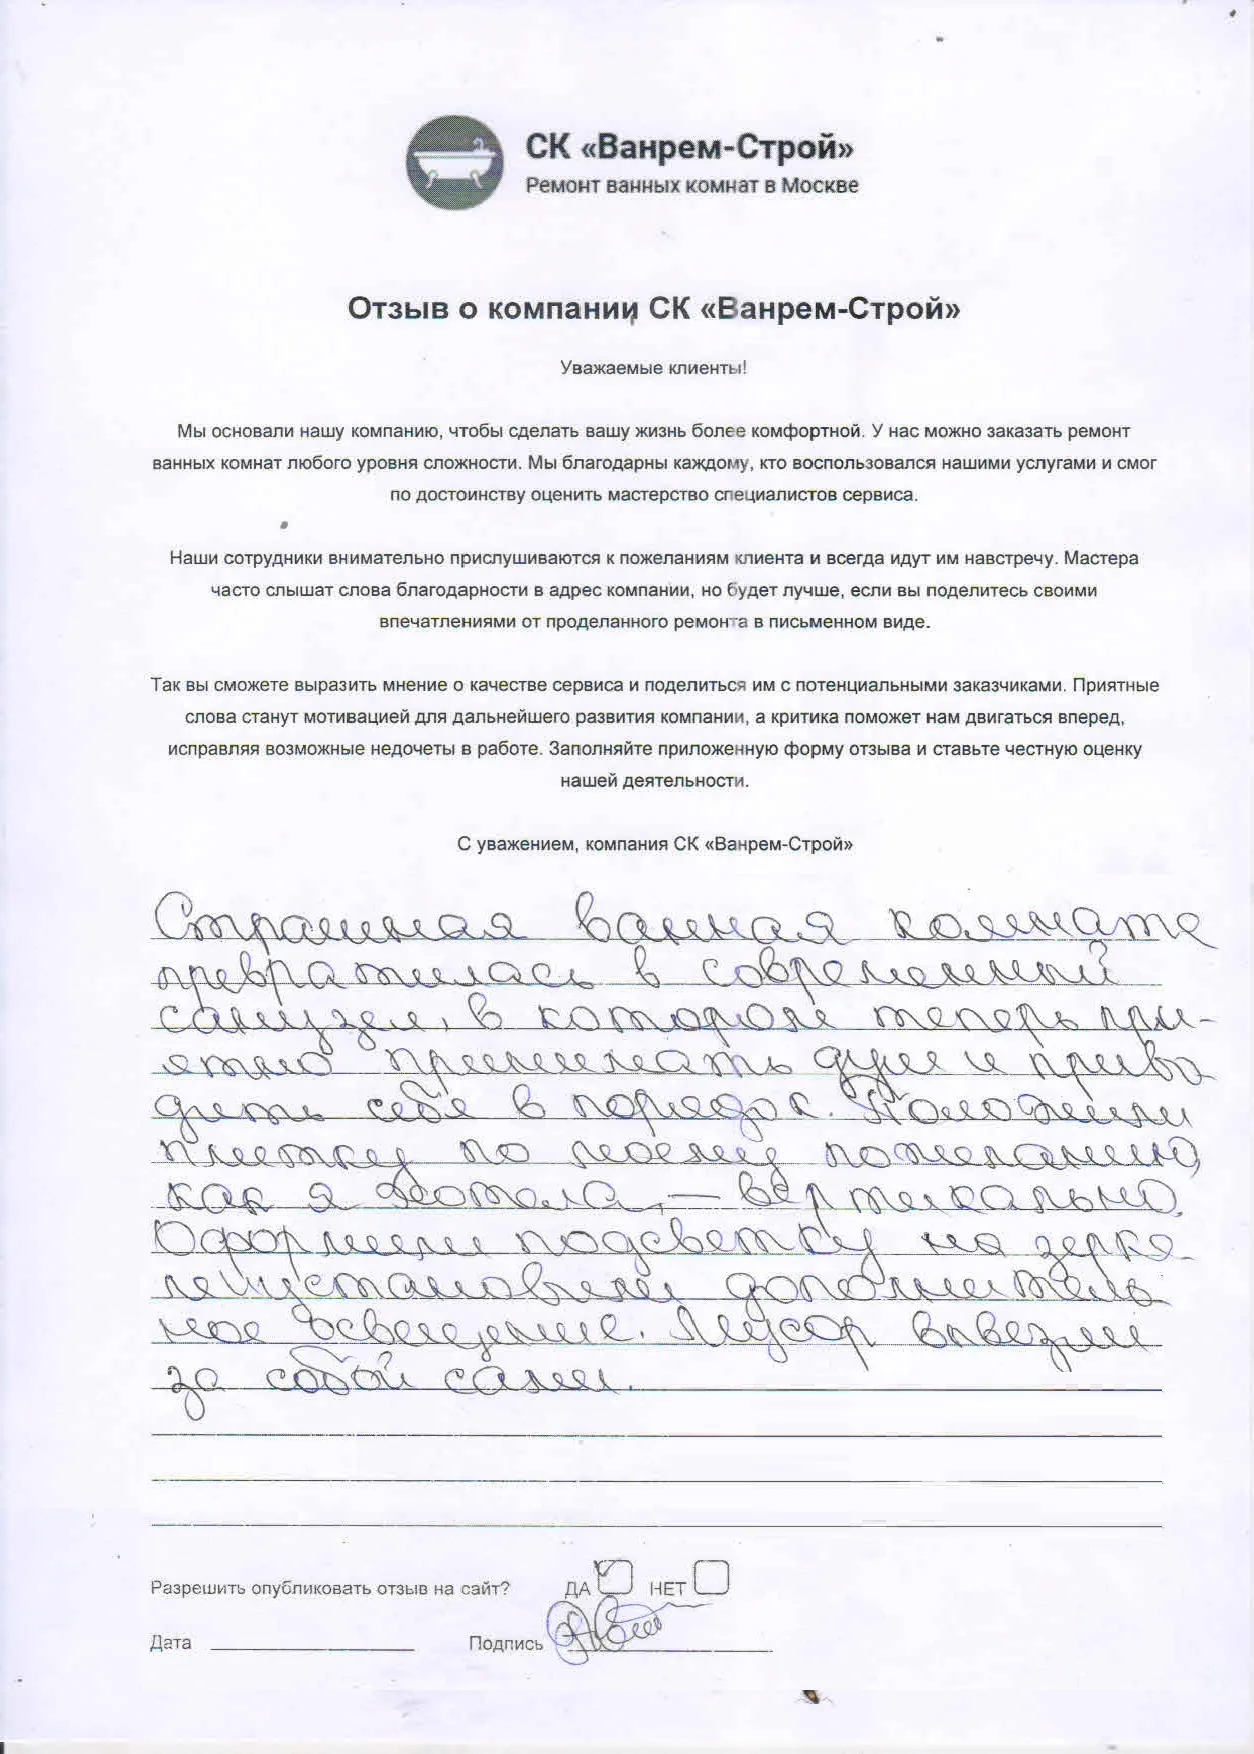 СК «Ванрем-Строй»
Ремонт ванных комнат в Москве
Отзыв о компании СК «Ванрем-Строй»
Уважаемые клиенты!
Мы основали нашу компанию, чтобы сделать вашу жизнь более комфортной. У нас можно заказать ремонт
ванных комнат любого уровня сложности. Мы благодарны каждому, кто воспользовался нашими услугами и смог
по достоинству оценить мастерство специалистов сервиса.
Наши сотрудники внимательно прислушиваются к пожеланиям клиента и всегда идут им навстречу. Мастера
часто слышат слова благодарности в адрес компании, но будет лучше, если вы поделитесь своими
впечатлениями от проделанного ремонта в письменном виде.
Так вы сможете выразить мнение о качестве сервиса и поделиться им с потенциальными заказчиками. Приятные
слова станут мотивацией для дальнейшего развития компании, а критика поможет нам двигаться вперед,
исправляя возможные недочеты в работе. Заполняйте приложенную форму отзыва и ставьте честную оценку
нашей деятельности.
С уважением, компания СК «Ванрем-Строй»
Страшная ванная комната
превратилась в современный
санузел, в котором теперь при-
ятно принимать душ и приво
дить себя в порядок. Положили
плитку по моему пожеланию,
как я хотела, — вертикально.
Оформили подсветку на зерка-
ле, установили дополнитель
ное освещение. Мусор вывезли
за собой сами.
Разрешить опубликовать отзыв на сайт? ДА НЕТ
Дата Подпись